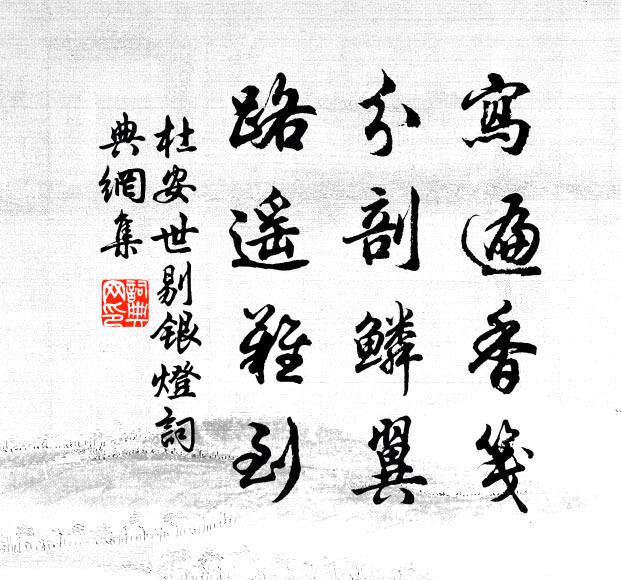 寫遍香箋
分剖鱗翼
路遥難到
杜安世剔銀燈詞
典網集
詞典
网印